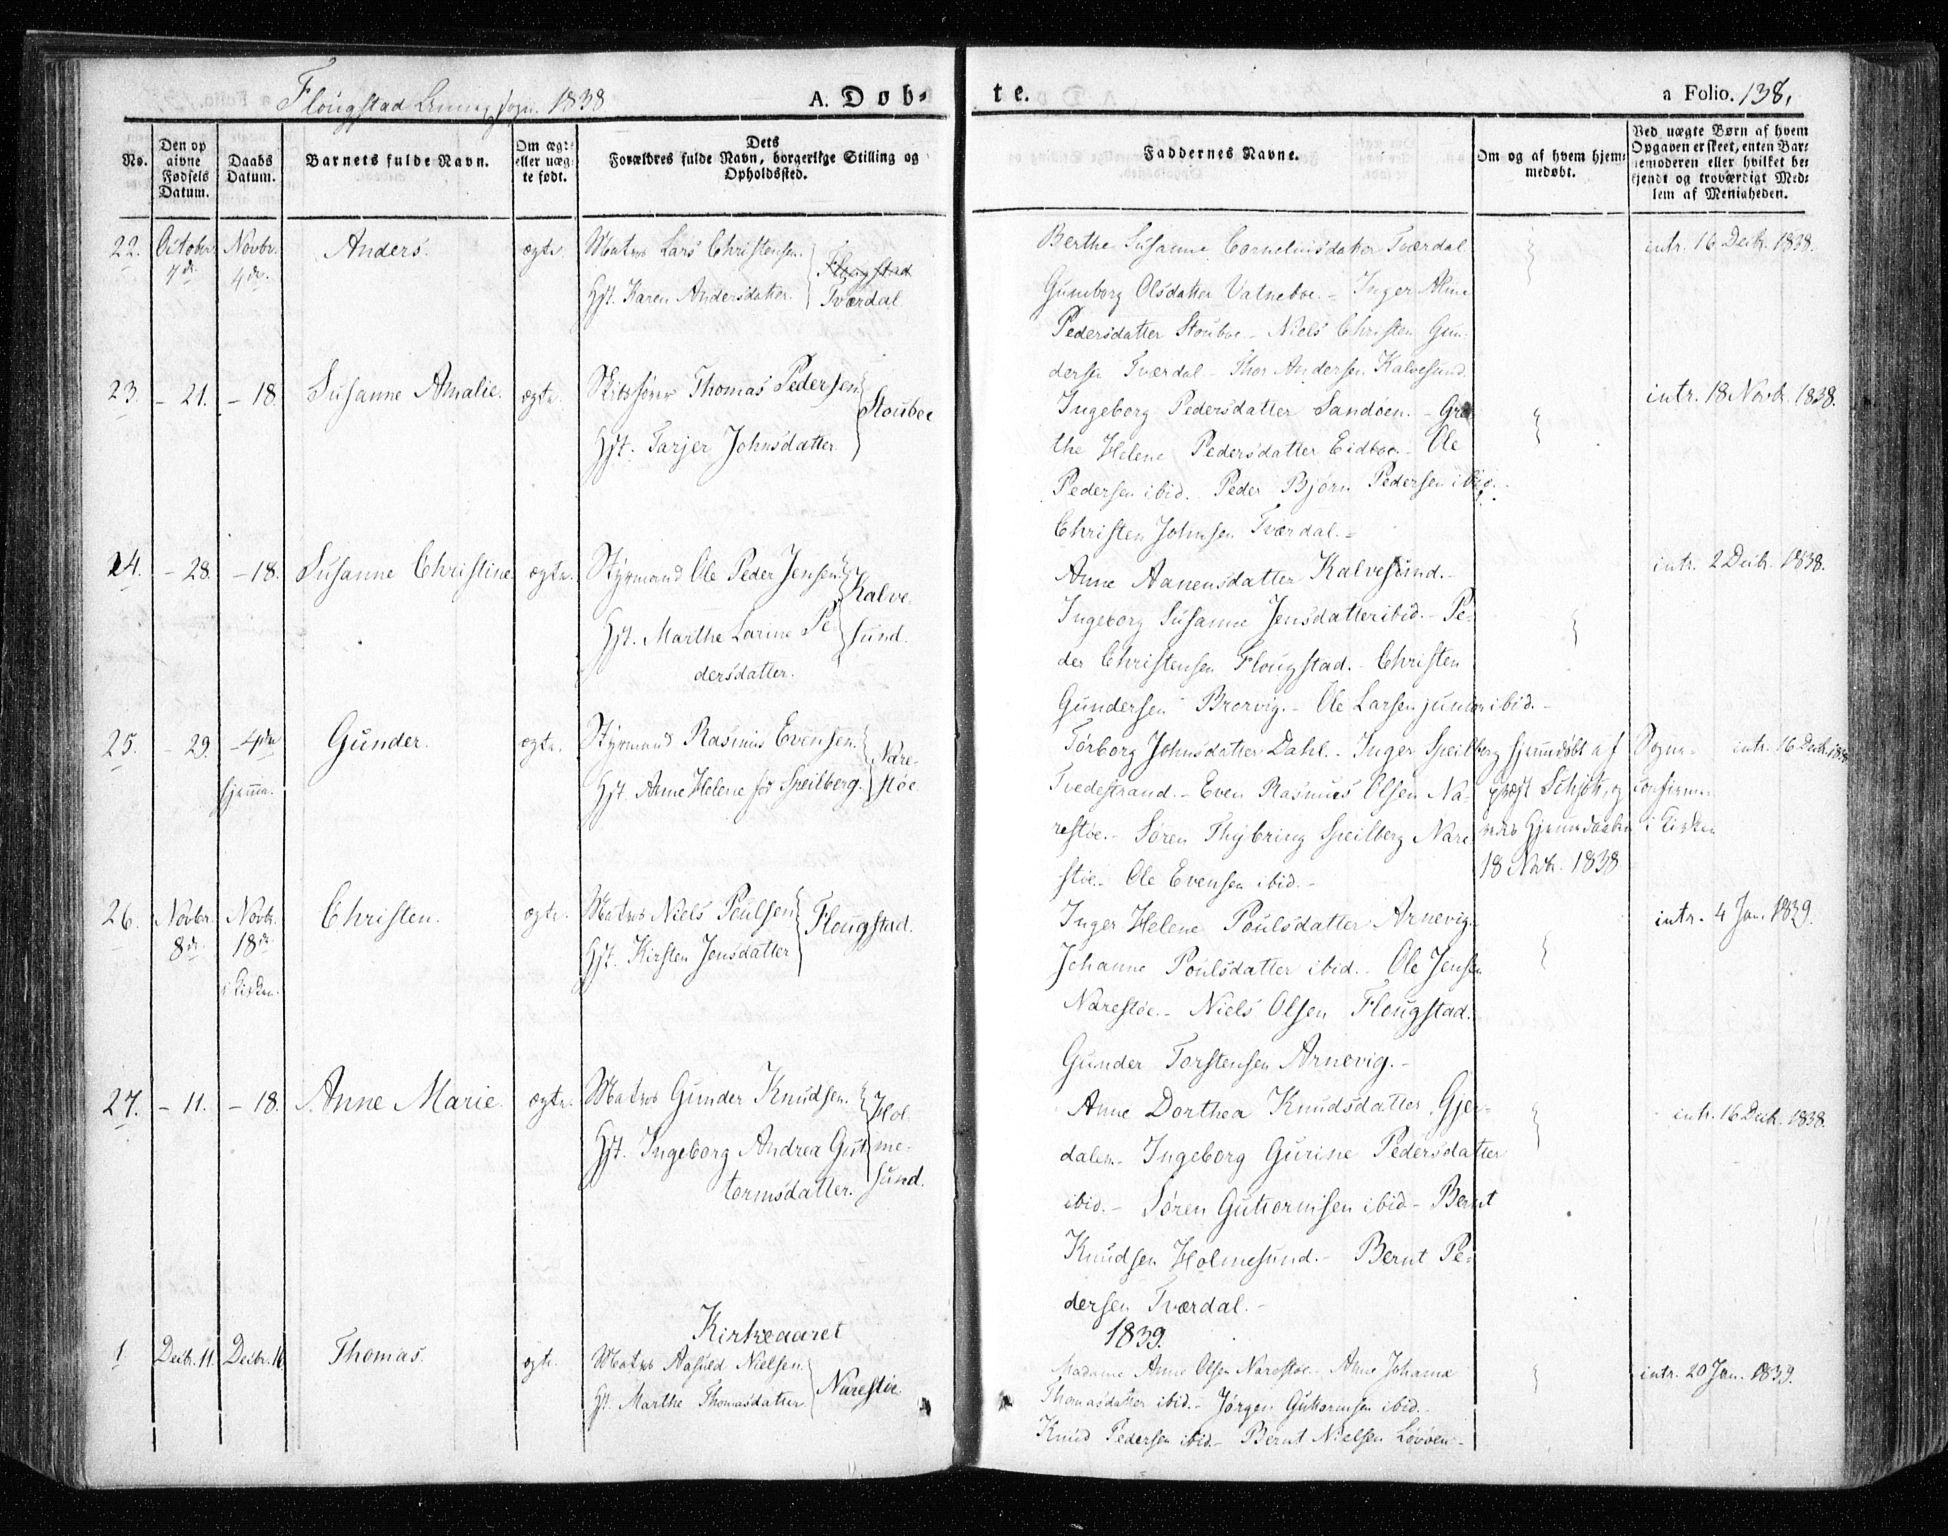 Flougstad Sogn. 1838
A. Dob-
te.
a Folio. 138,
No.
Den op
givne
Fødsels
Datum.
Daabs
Datum.
Barnets fulde Navn.
Om æg-
eller uæg-
te født.
Dets
Forældres fulde Navn, borgerlige Stilling og
Opholdssted.
Faddernes Navne.
Om og af hvem hjem-
medøbt.
Ved uægte Børn af hvem
Opgaven er skeet, enten Bar-
nemoderen eller hvilket be-
kjendt og troværdigt Med-
lem af Menigheden.
22. October 7de Novbr. 4de. Anders. ægte.
Matros Lars Christensen
Hst. Karen Andersdatter
Flougstad
Tværdal
Berthe Susanne Corneliusdatter Tværdal
Gunborg Olsdatter Vatneboe. - Inger Aline
Pedersdatter Stouboe - Niels Christen Gun-
dersen Tværdal - Thor Andersen Kalvesund.
intr. 16 Decbr. 1838.
23. - 21. - 18. Susanne Amalie. ægte.
Skibsfører Thomas Pedersen
Hst. Tarjer Johnsdatter
Stouboe
Ingeborg Pedersdatter Sandøen. - Gre-
the Helene Pedersdatter Eidboe. - Ole
Pedersen ibid. Peder Bjørn Pedersen ibid.
Christen Johnsen Tværdal. -
intr. 18 Novbr. 1838.
24. - 28. - 18. Susanne Christine ægte.
Styrmand Ole Peder Jensen
Hst. Marthe Larine Pe-
dersdatter.
Kalve-
sund.
Anne Aanensdatter Kalvesund. -
Ingeborg Susanne Jensdatter ibid. - Pe-
der Christensen Flougstad. - Christen
Gundersen Brorvig. - Ole Larsen junior ibid. -
intr. 2 Decbr. 1838.
25. - 29. - 4de hjemme. Gunder. ægte.
Styrmand Rasmus Evensen.
Hst. Anne Helene Speilberg.
Nare-
støe
Torborg Johnsdatter Dahl. - Inger Speilberg
Tvedestrand. - Even Rasmus Olsen Na-
restøe. - Søren Thybring Speilberg Nare-
støe. Ole Evensen ibid. -
hjemmedøbt af Sogne-
præst Schjøtz, og confirme-
ret hjemmedaaben i Kirken
18 Novbr. 1838
intr. 16 Decbr. 1838
26. Novbr. 8de. Novbr. 18de i Kirken. Christen. ægte.
Matros Niels Poulsen
Hst. Kirsten Jensdatter
Flougstad.
Inger Helene Poulsdatter Arnevig.
Johanne Poulsdatter ibid. - Ole Jensen
Narestøe. - Niels Olsen Flougstad.
Gunder Torstensen Arnevig. -
intr. 4 Jan. 1839.
27. - 11. - 18. Anne Marie. ægte.
Matros Gunder Knudsen.
Hst. Ingeborg Andrea Gut-
tormsdatter.
Hol-
me-
sund.
Anne Dorthea Knudsdatter Gjer-
dalen. - Ingeborg Gurine Pedersdatter
ibid. - Søren Guttormsen ibid - Bernt
Knudsen Holmesund. - Bernt Pe-
dersen Tværdal. -
intr. 16 Decbr. 1838.
Kirkeaaret
1839.
1 Decbr. 11. Decbr. 16 Thomas. ægte.
Matros Aasuld Nielsen.
Hst. Marthe Thomasdatter
Narestøe
Madame Anne Olsen Narestøe. Anne Johanne
Thomasdatter ibid. - Jørgen Guttormsen ibid. -
Knud Pedersen ibid. - Bernt Nielsen Løvøen -
intr. 20 Jan. 1839.